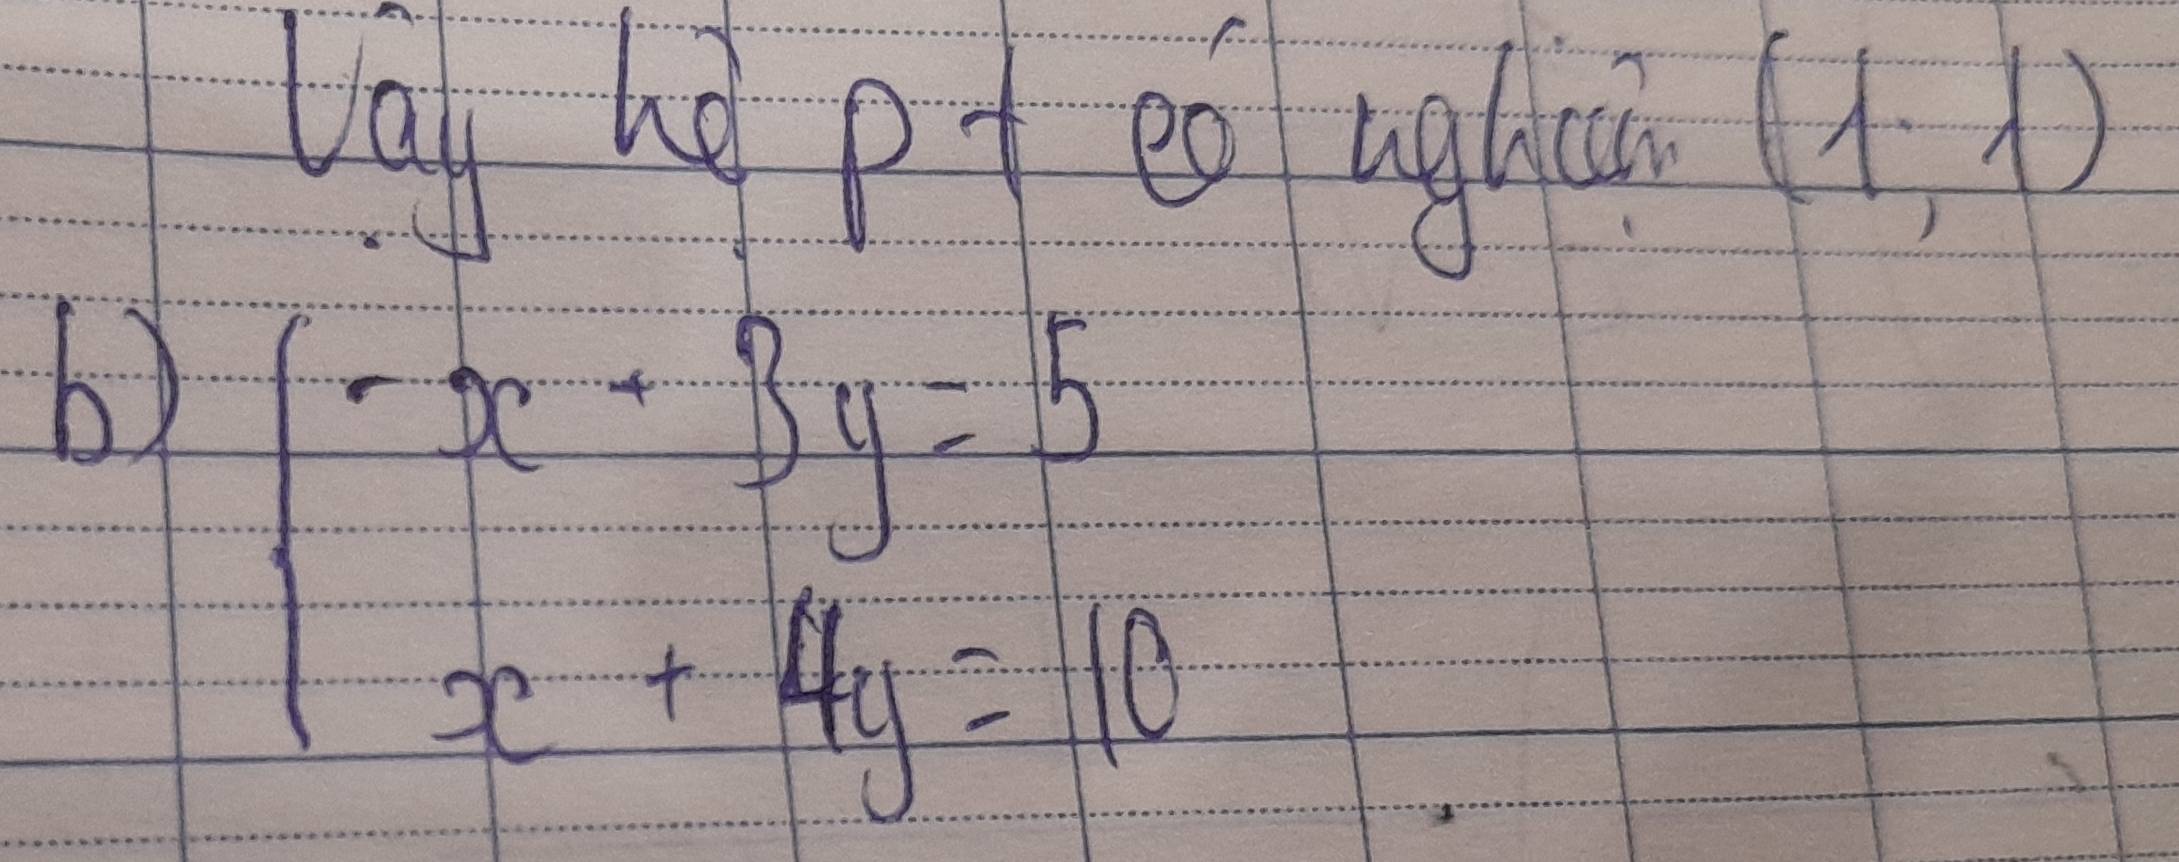 Vậy hệ pt có nghiệm (1, 1)
b) { -x + 3y = 5
x + 4y = 10